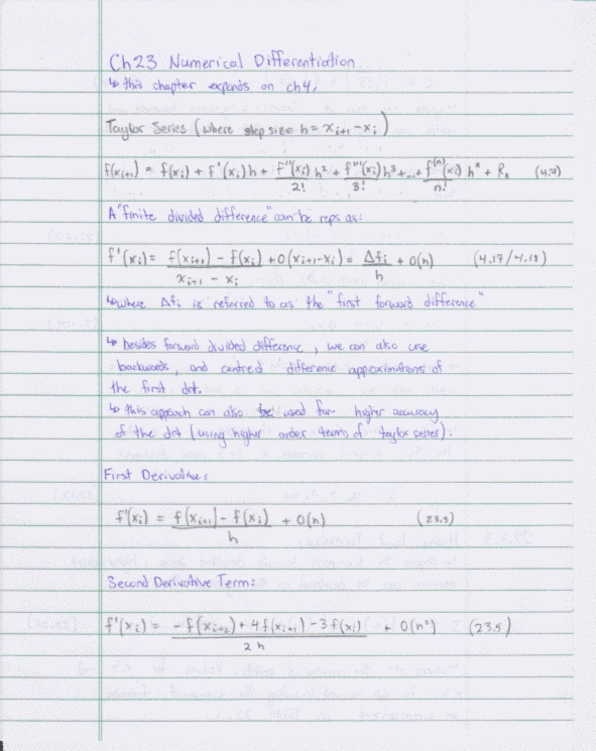 Ch23 Numerical Differentiation
↳ this chapter expands on ch4,
Taylor Series (where step size h = xᵢ₊₁ - xᵢ)
f(xᵢ₊₁) = f(xᵢ) + f'(xᵢ)h + f''(xᵢ)/2! h² + f'''(xᵢ)/3! h³ + ... + f⁽ⁿ⁾(xᵢ)/n! hⁿ + Rₙ (4.7)
A "finite divided difference" can be reps as:
f'(xᵢ) = (f(xᵢ₊₁) - f(xᵢ))/(xᵢ₊₁ - xᵢ) + O(xᵢ₊₁-xᵢ) = Δfᵢ/h + O(h) (4.17/4.18)
↳ where Δfᵢ is referred to as the "first forward difference"
↳ besides forward divided difference, we can also use
backwards, and centred difference approximations of
the first drt.
↳ this appoach can also be used for higher accuracy
of the drt (using higher order terms of taylor series).
First Derivative:
f'(xᵢ) = (f(xᵢ₊₁) - f(xᵢ))/h + O(h) (23.3)
Second Derivative Term:
f'(xᵢ) = (-f(xᵢ₊₂) + 4f(xᵢ₊₁) - 3f(xᵢ))/2h + O(h²) (23.5)